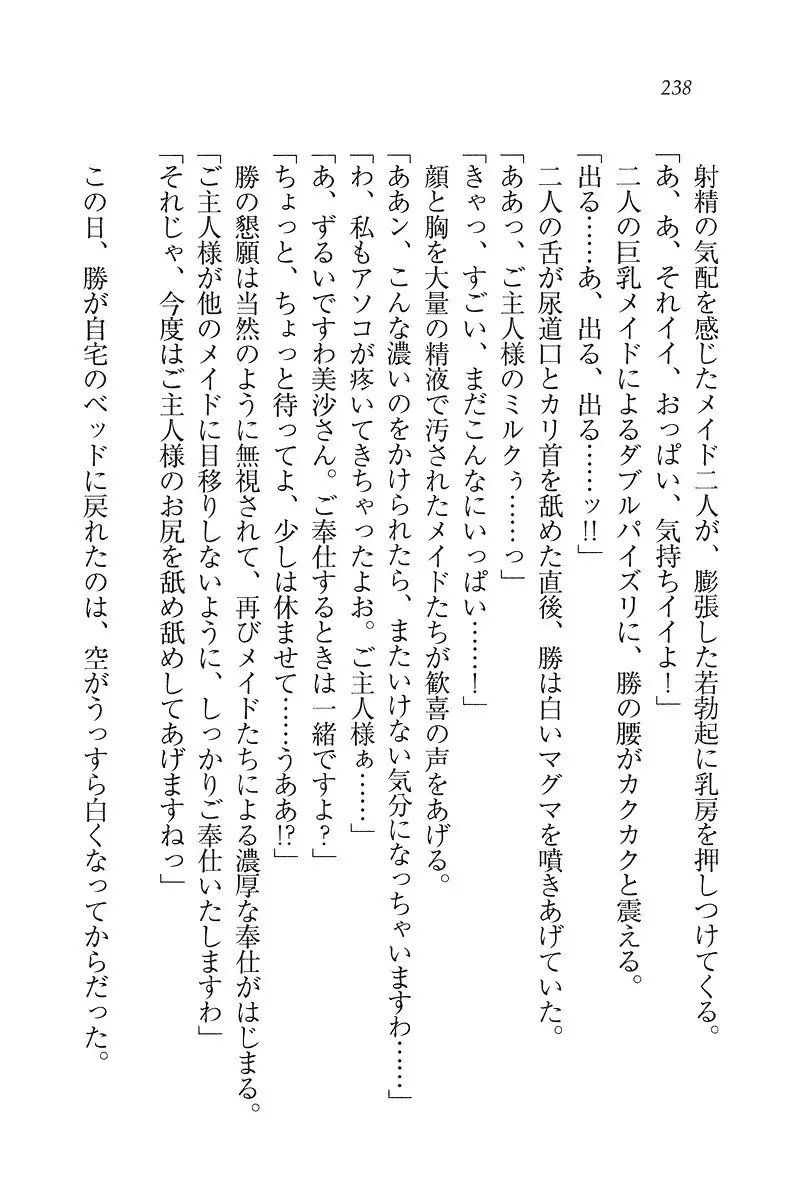 238
射精の気配を感じたメイド二人が、膨張した若勃起に乳房を押しつけてくる。
「あ、あ、それイイ、おっぱい、気持ちイイよ！」
二人の巨乳メイドによるダブルパイズリに、勝の腰がカクカクと震える。
「出る……あ、出る、出る……ッ!!」
二人の舌が尿道口とカリ首を舐めた直後、勝は白いマグマを噴きあげていた。
「ああっ、ご主人様のミルクぅ……っ」
「きゃっ、すごい、まだこんなにいっぱい……！」
顔と胸を大量の精液で汚されたメイドたちが歓喜の声をあげる。
「ああン、こんな濃いのをかけられたら、またいけない気分になっちゃいますわ……」
「わ、私もアソコが疼いてきちゃったよお。ご主人様ぁ……」
「あ、ずるいですわ美沙さん。ご奉仕するときは一緒ですよ？」
「ちょっと、ちょっと待ってよ、少しは休ませて……うああ!?」
勝の懇願は当然のように無視されて、再びメイドたちによる濃厚な奉仕がはじまる。
「ご主人様が他のメイドに目移りしないように、しっかりご奉仕いたしますわ」
「それじゃ、今度はご主人様のお尻を舐め舐めしてあげますねっ」
この日、勝が自宅のベッドに戻れたのは、空がうっすら白くなってからだった。